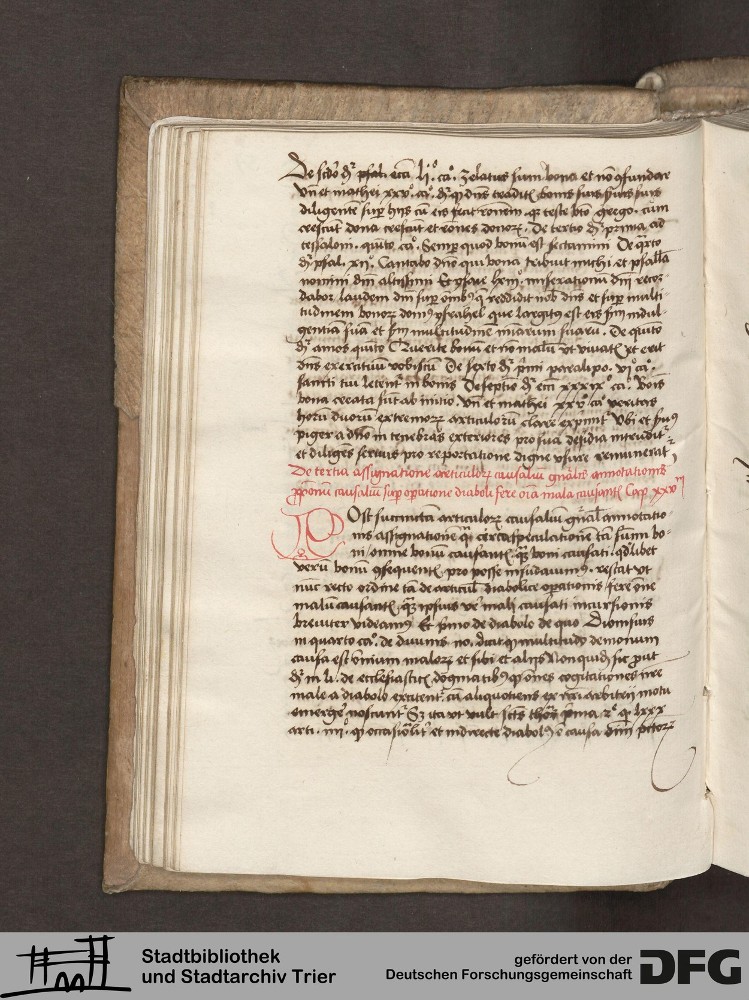 De scdo dr psal. ecci li° ca°. Zelatus sum bona et no gfundar
vn et mathei xxv° ca°. dr qp dns tradit bonis suis suis
diligente sup hiis cu eis ponet ronem qr teste bto grego. cum
crescut dona crescut et rones donor. De tertio dr prima ad
tessaloni. quito ca°. Semp quod bonu est sectamini De qrto
dr psal. xii°. Cantabo dno qui bona tribuit michi et psalla
nomini dni altissimi Et ysaie lxiii°. miserationu dni recor
dabor laudem dni sup omibus q reddidit nob dns et sup multi
tudinem bonor domus ysrahel que largitus est eis scdm indul
gentia sua et scdm multitudine miaru suaru. De quito
dr amos quito Querite bonu et no malu vt viuatis et erit
dns exercituu vobiscu De sexto dr primi paralipo. vi° ca°.
sancti tui letent in bonis De septio dr ecci xxxix° ca°. Bois
bona creata sut ab initio. vn et mathei xxv° ca° veritas
horu duoru extremor articuloru clare exprimit vbi et suus
piger a dno in tenebras exteriores pro sua desidia intrudit
et diliges seruus pro reportatione digne vsure remuneratur
De tertia assignatione articulor causaliu gnalis annotationis
pponum causaliu sup opatione diaboli fere oia mala causantis Cap xxv
Post succincta articulor causaliu gnal annotatio
nis assignatione qi circa speculatione ta sumi bo
ni omne bonu causantis qz boni causati qdlibet
veru bonu gsequentis pro posse insudauimus. restat vt
nuc recto ordine ta de articul diabolice opationis fere one
malu causantis qz ipsius ve mali causati incursionis
breuiter videamus Et primo de diabolo de quo Dionisius
in quarto ca°. de diuinis no. dicit qp multitudo demonum
causa est omnium malor et sibi et aliis Nonquid sic put
dr in li. de ecclesiasticis dogmatibus qp ones cogitationes nre
male a diabolo excitent. cu aliquotiens ex nri arbitrii motu
emerge noscunt Sz ita vt vult scts thos prima 2e q. lxxx
arti. iiii°. qp occasionalit et indirecte diabolus e causa oim pctor
Stadtbibliothek
und Stadtarchiv Trier
gefördert von der
Deutschen Forschungsgemeinschaft
DFG